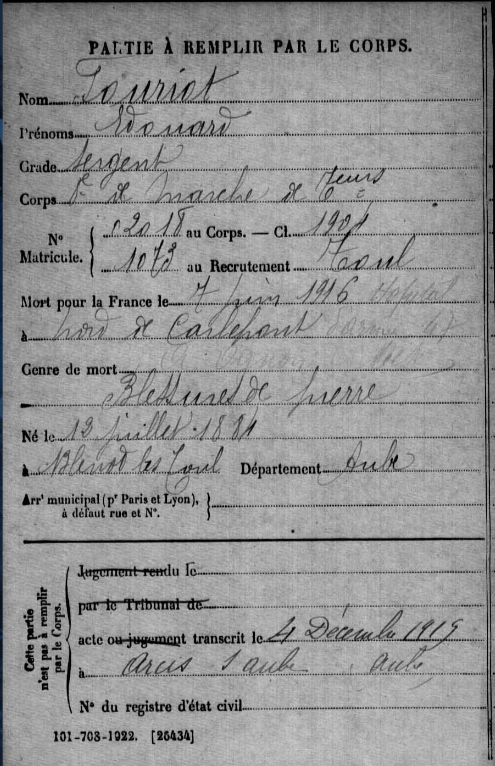 PARTIE À REMPLIR PAR LE CORPS.
Nom Touriot
Prénoms Edouard
Grade Sergent
Corps de Marche de
N° Matricule. 02018 au Corps. — Cl. 1904
1073 au Recrutement Toul
Mort pour la France le 7 juin 1916 Hopital
à nord de Carlepont
Genre de mort
Blessures de guerre
Né le 13 juillet 1884
à Blénod les Toul Département Aube
Arrt municipal (pr Paris et Lyon), à défaut rue et N°.
Cette partie n'est pas à remplir par le Corps.
Jugement rendu le
par le Tribunal de
acte ou jugement transcrit le 4 Décembre 1919
à Arcis s aube Aube
N° du registre d'état civil
101-708-1922. [26434]